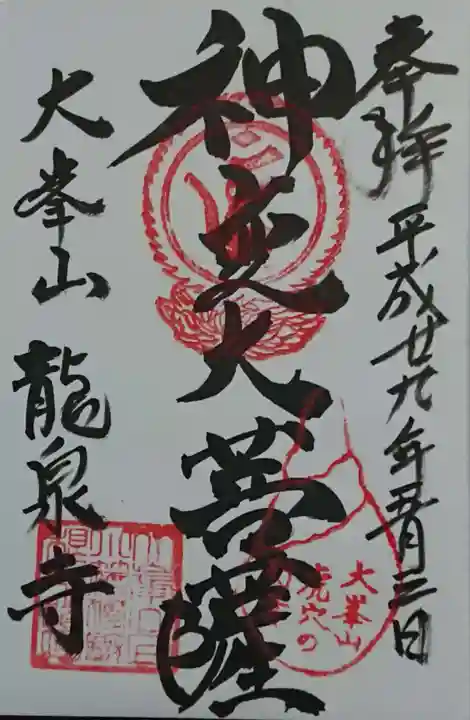 奉拝 平成廿九年五月三日
神変大菩薩
大峯山 龍泉寺
大峯山
虎穴の